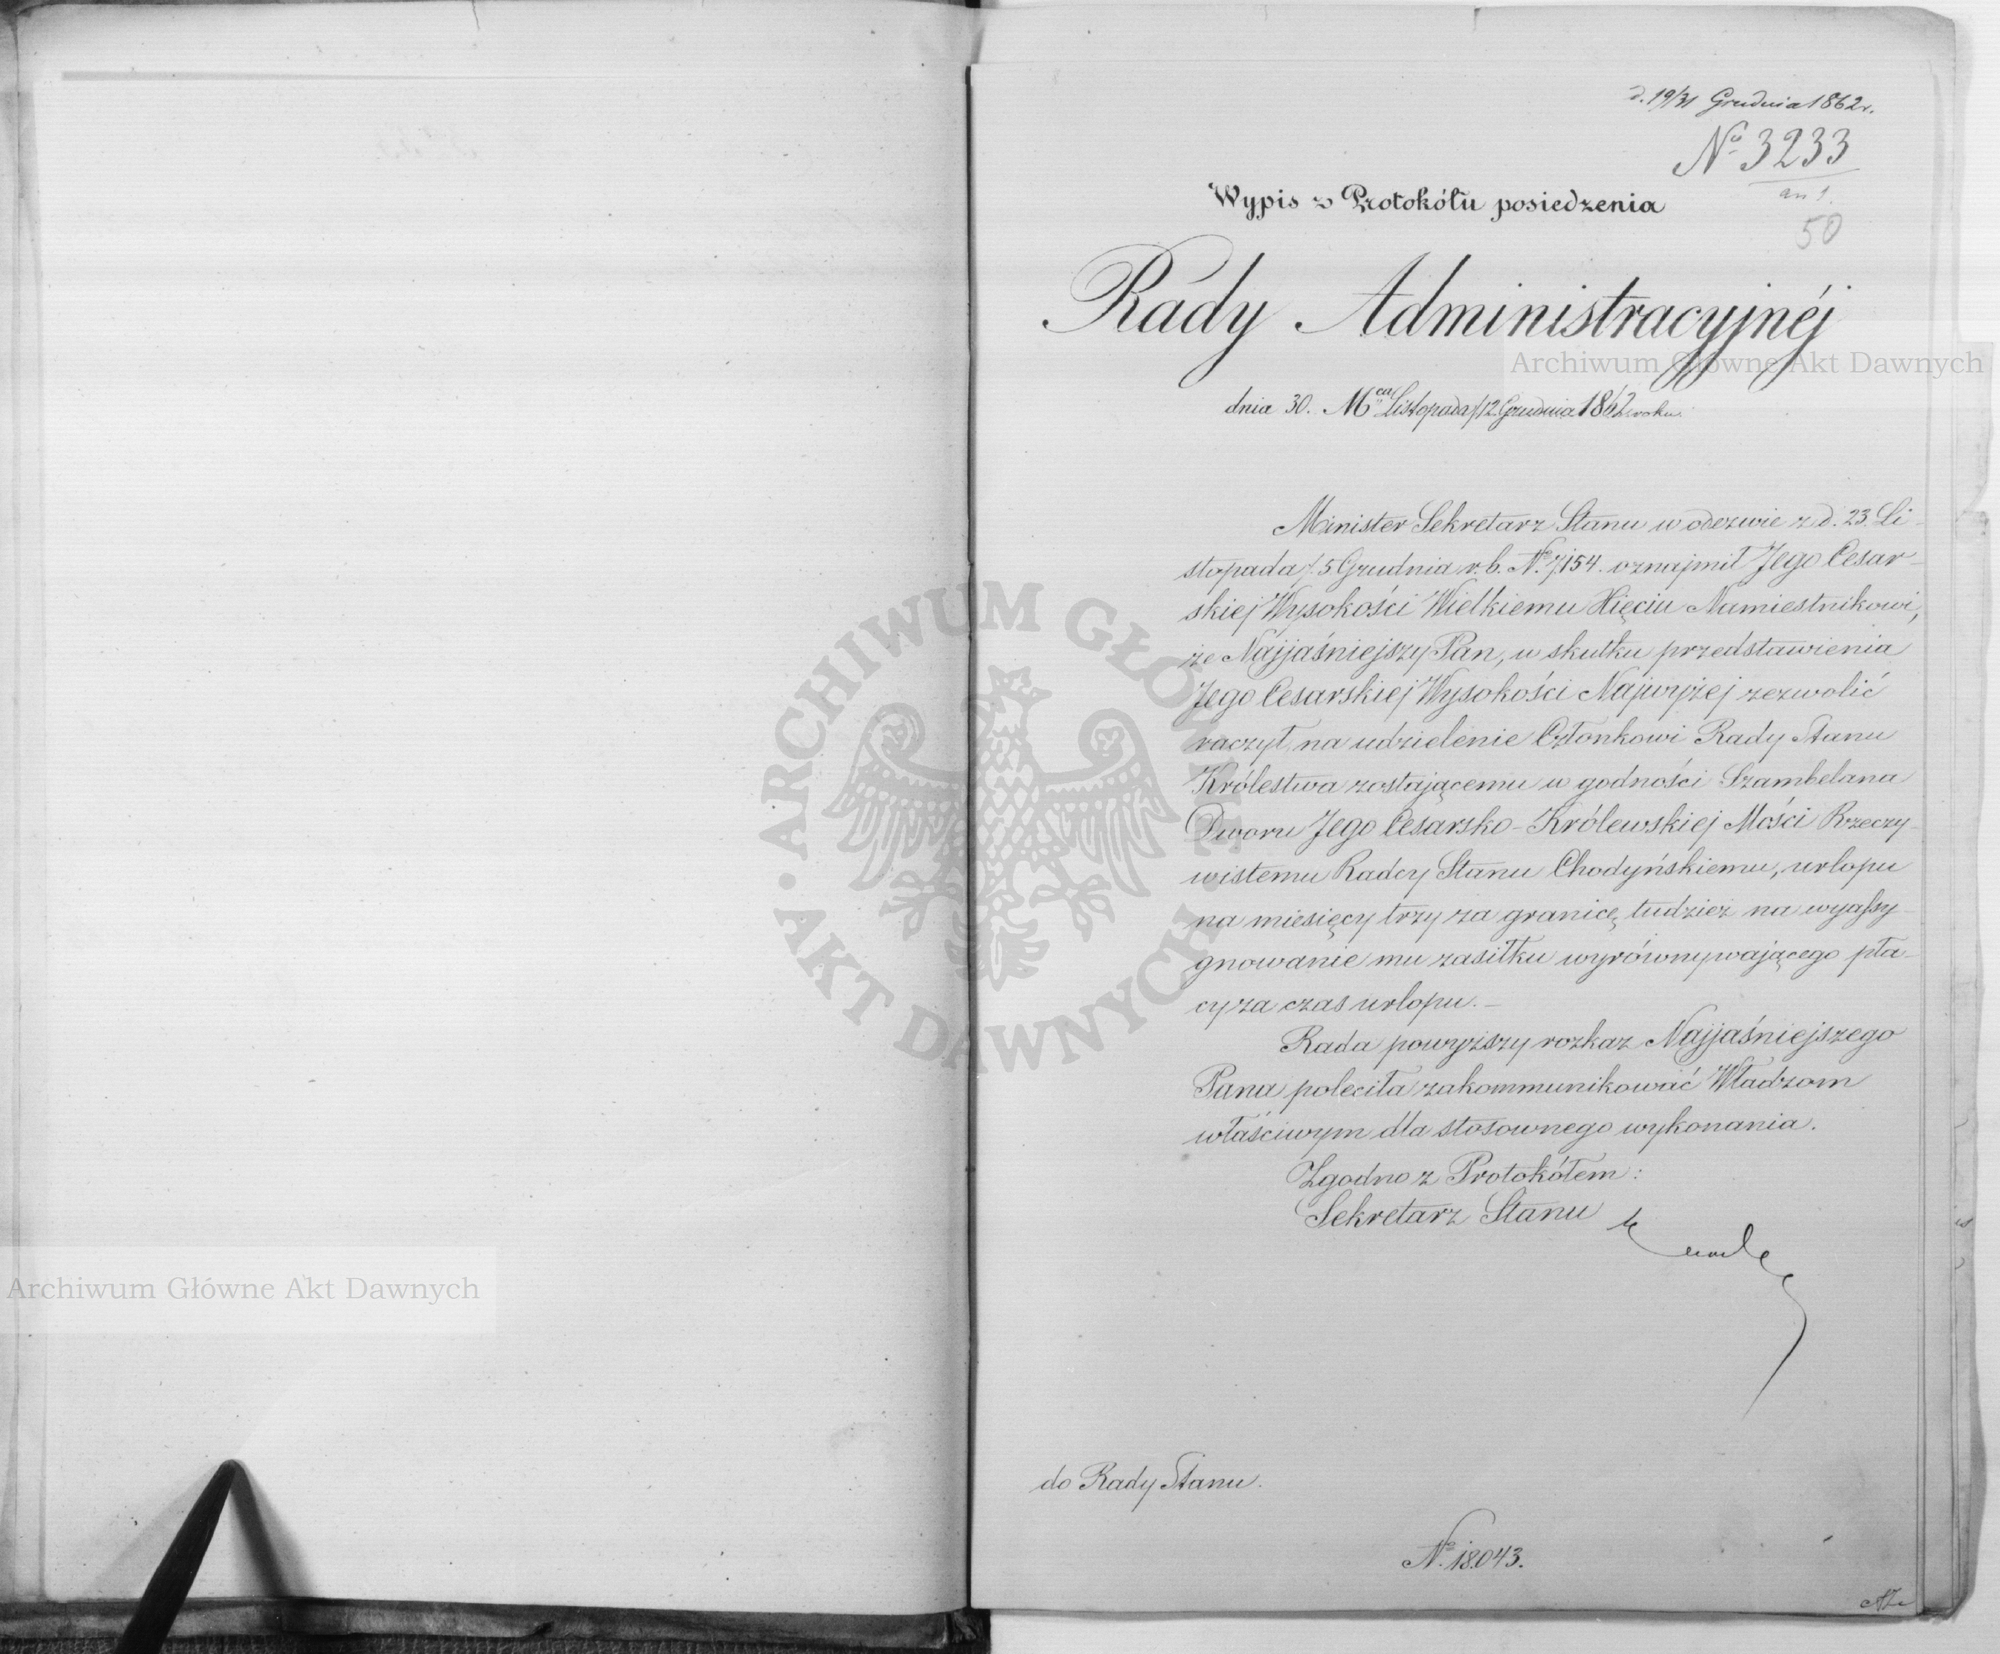 d. 19/31 Grudnia 1862 r.
No 3233
an 1.
50
Wypis z Protokółu posiedzenia
Rady Administracyjnéj
Archiwum Główne Akt Dawnych
dnia 30. Mca Listopada / 12 Grudnia 1862 roku.
Minister Sekretarz Stanu w odezwie z d. 23. Li-
stopada /. 5 Grudnia r. b. No 7,154. oznajmił Jego Cesar-
skiej Wysokości Wielkiemu Xięciu Namiestnikowi,
że Najjaśniejszy Pan, w skutku przedstawienia
Jego Cesarskiej Wysokości Najwyżej zezwolić
raczył, na udzielenie Członkowi Rady Stanu
Królestwa zostającemu w godności Szambelana
Dworu Jego Cesarsko-Królewskiej Mości Rzeczy-
wistemu Radcy Stanu Chodyńskiemu, urlopu
na miesięcy trzy za granicę, tudzież na wyassy-
gnowanie mu zasiłku wyrównywającego pła-
cy za czas urlopu. –
Rada powyższy rozkaz Najjaśniejszego
Pana poleciła zakommunikować Władzom
właściwym dla stosownego wykonania.
Zgodno z Protokółem:
Sekretarz Stanu
do Rady Stanu.
No 18.043.
ARCHIWUM GŁÓWNE · AKT DAWNYCH ·
Archiwum Główne Akt Dawnych